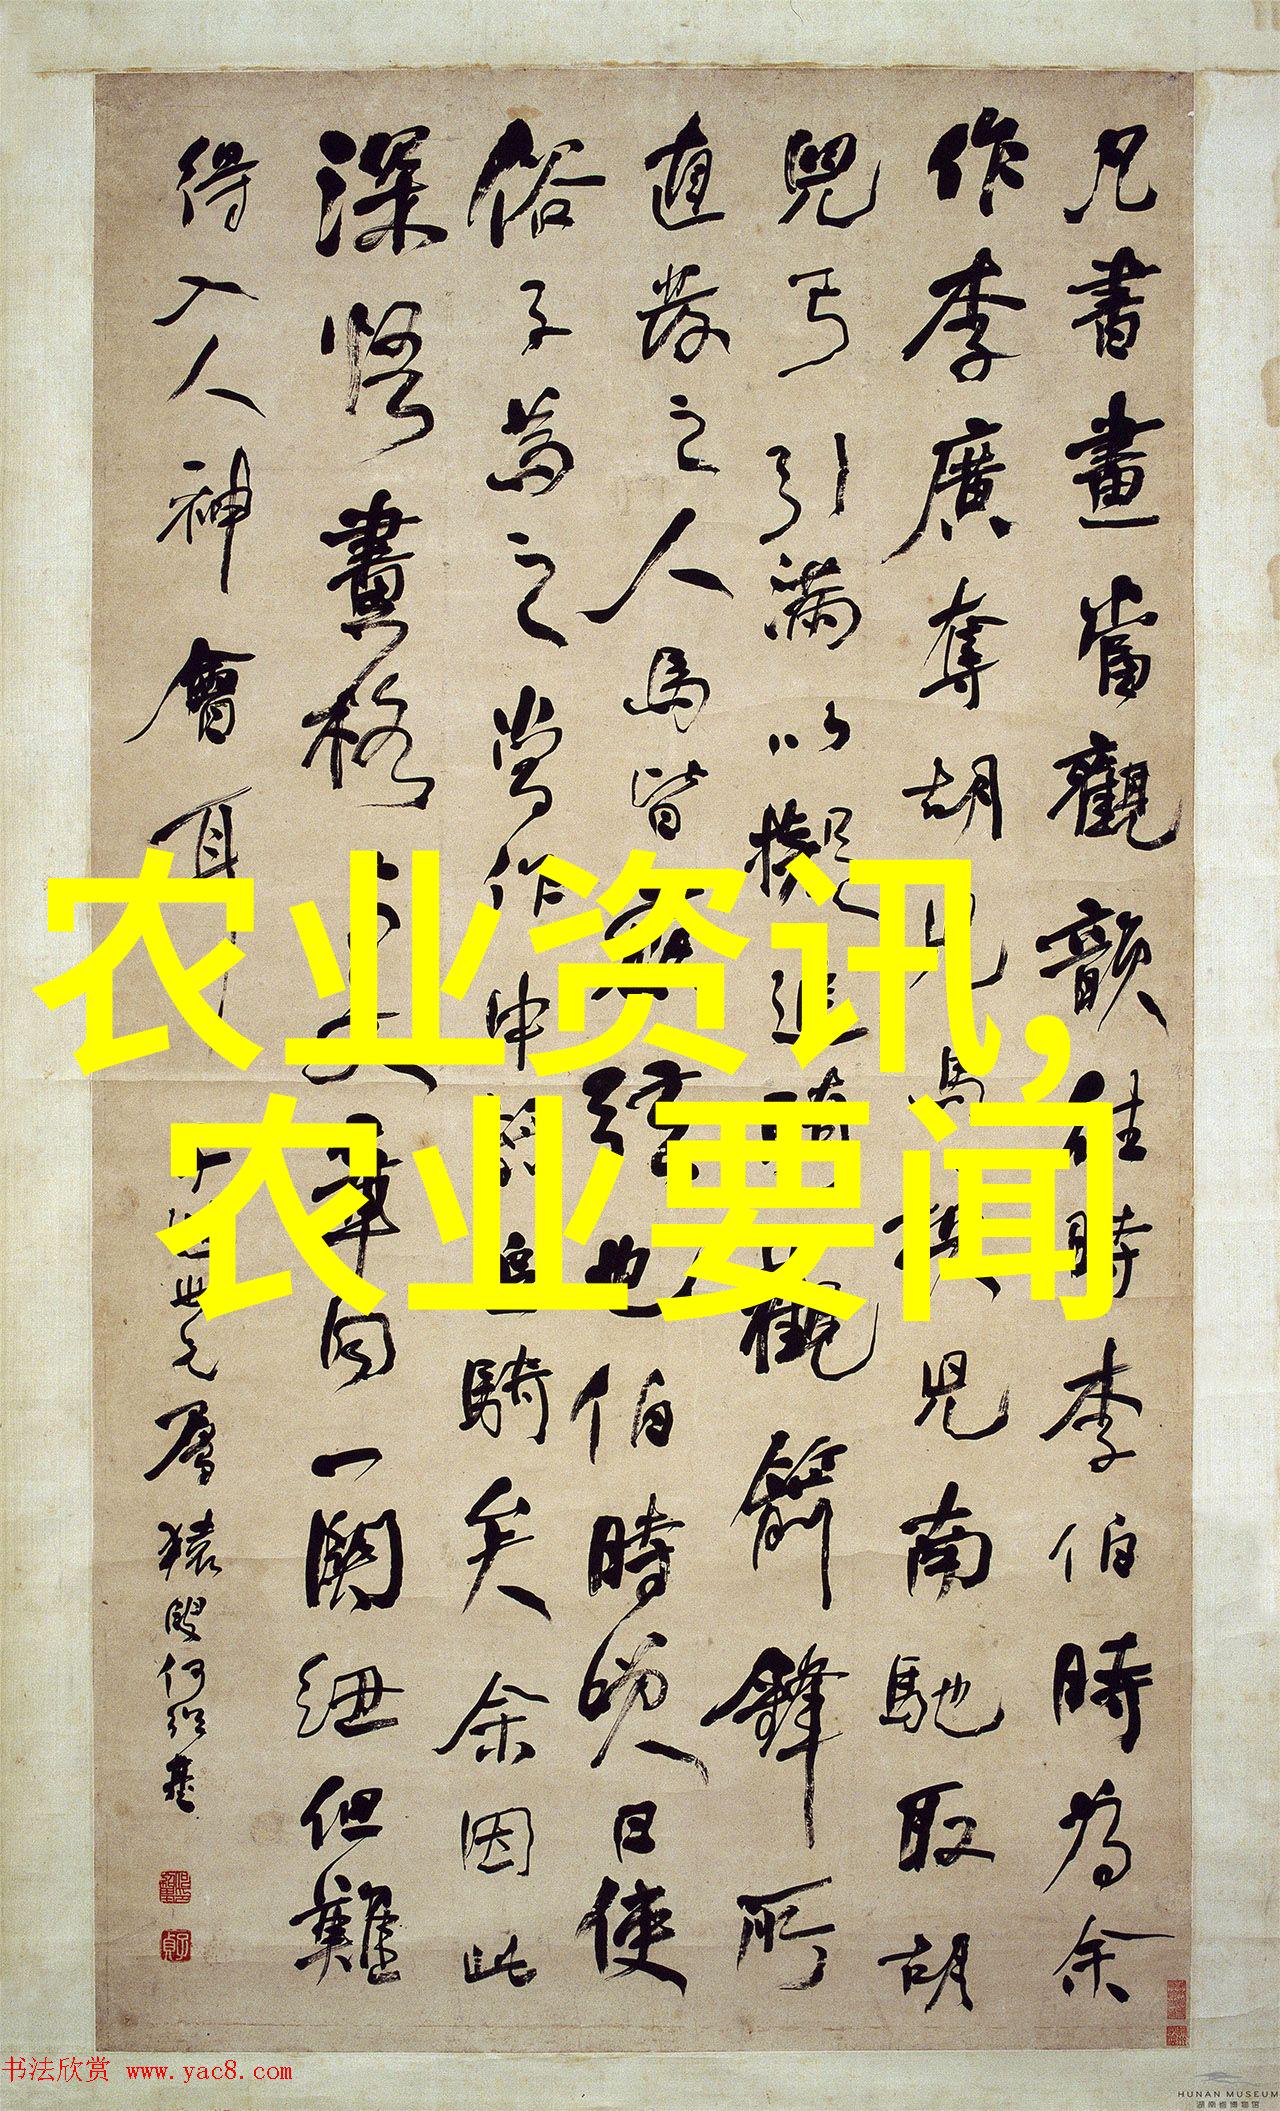 凡書畫當觀韻往時李伯時為余
作李廣奪胡兒馬挾兒南馳取胡
兒弓引滿以擬追騎觀箭鋒所
直發之人馬皆應弦也伯時笑曰使
俗子為之當作中箭追騎矣余因此
深悟畫格與文章同一關紐但難
得入人神會耳
子延世元層猿叟何紹基
农业资讯,
农业要闻
书法欣赏 www.yac8.com
HUNAN MUSEUM
湖南省博物馆